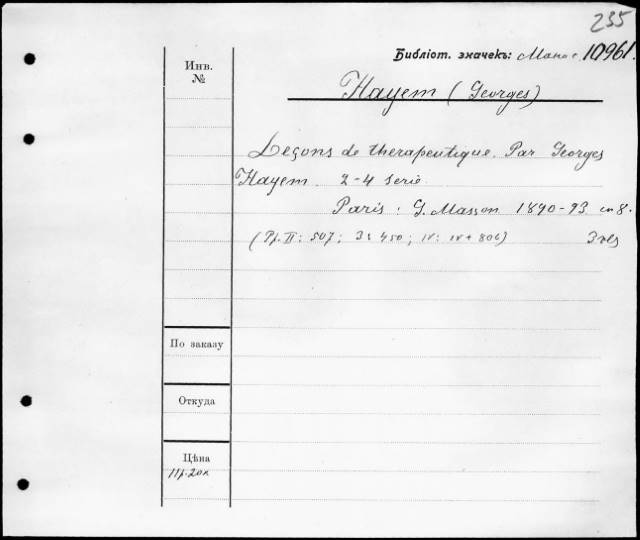 235
Библіот. значекъ: 10961.
Инв.
№
Hayem (Georges)
Leçons de therapeutique. Par Georges
Hayem. 2-4 serie.
Paris. G. Masson 1890-93. in 8.
(Pt. II: 507; 3: 450; IV: IV + 806)
По заказу
Откуда
Цѣна
11р.20к